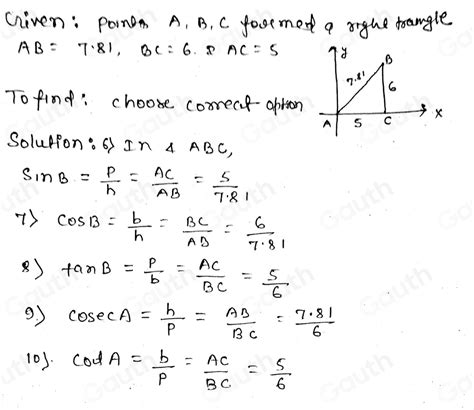 Given: points A, B, C foremed a right triangle
AB = 7.81, BC = 6. & AC = 5
y
B
7.81
6
A
5
C
x
To find: choose correct option
Solution: 6) In Δ ABC,
SinB = p/h = AC/AB = 5/7.81
7) cosB = b/h = BC/AB = 6/7.81
8) tanB = P/b = AC/BC = 5/6
9) cosecA = h/P = AB/BC = 7.81/6
10). cotA = b/P = AC/BC = 5/6
Gauth